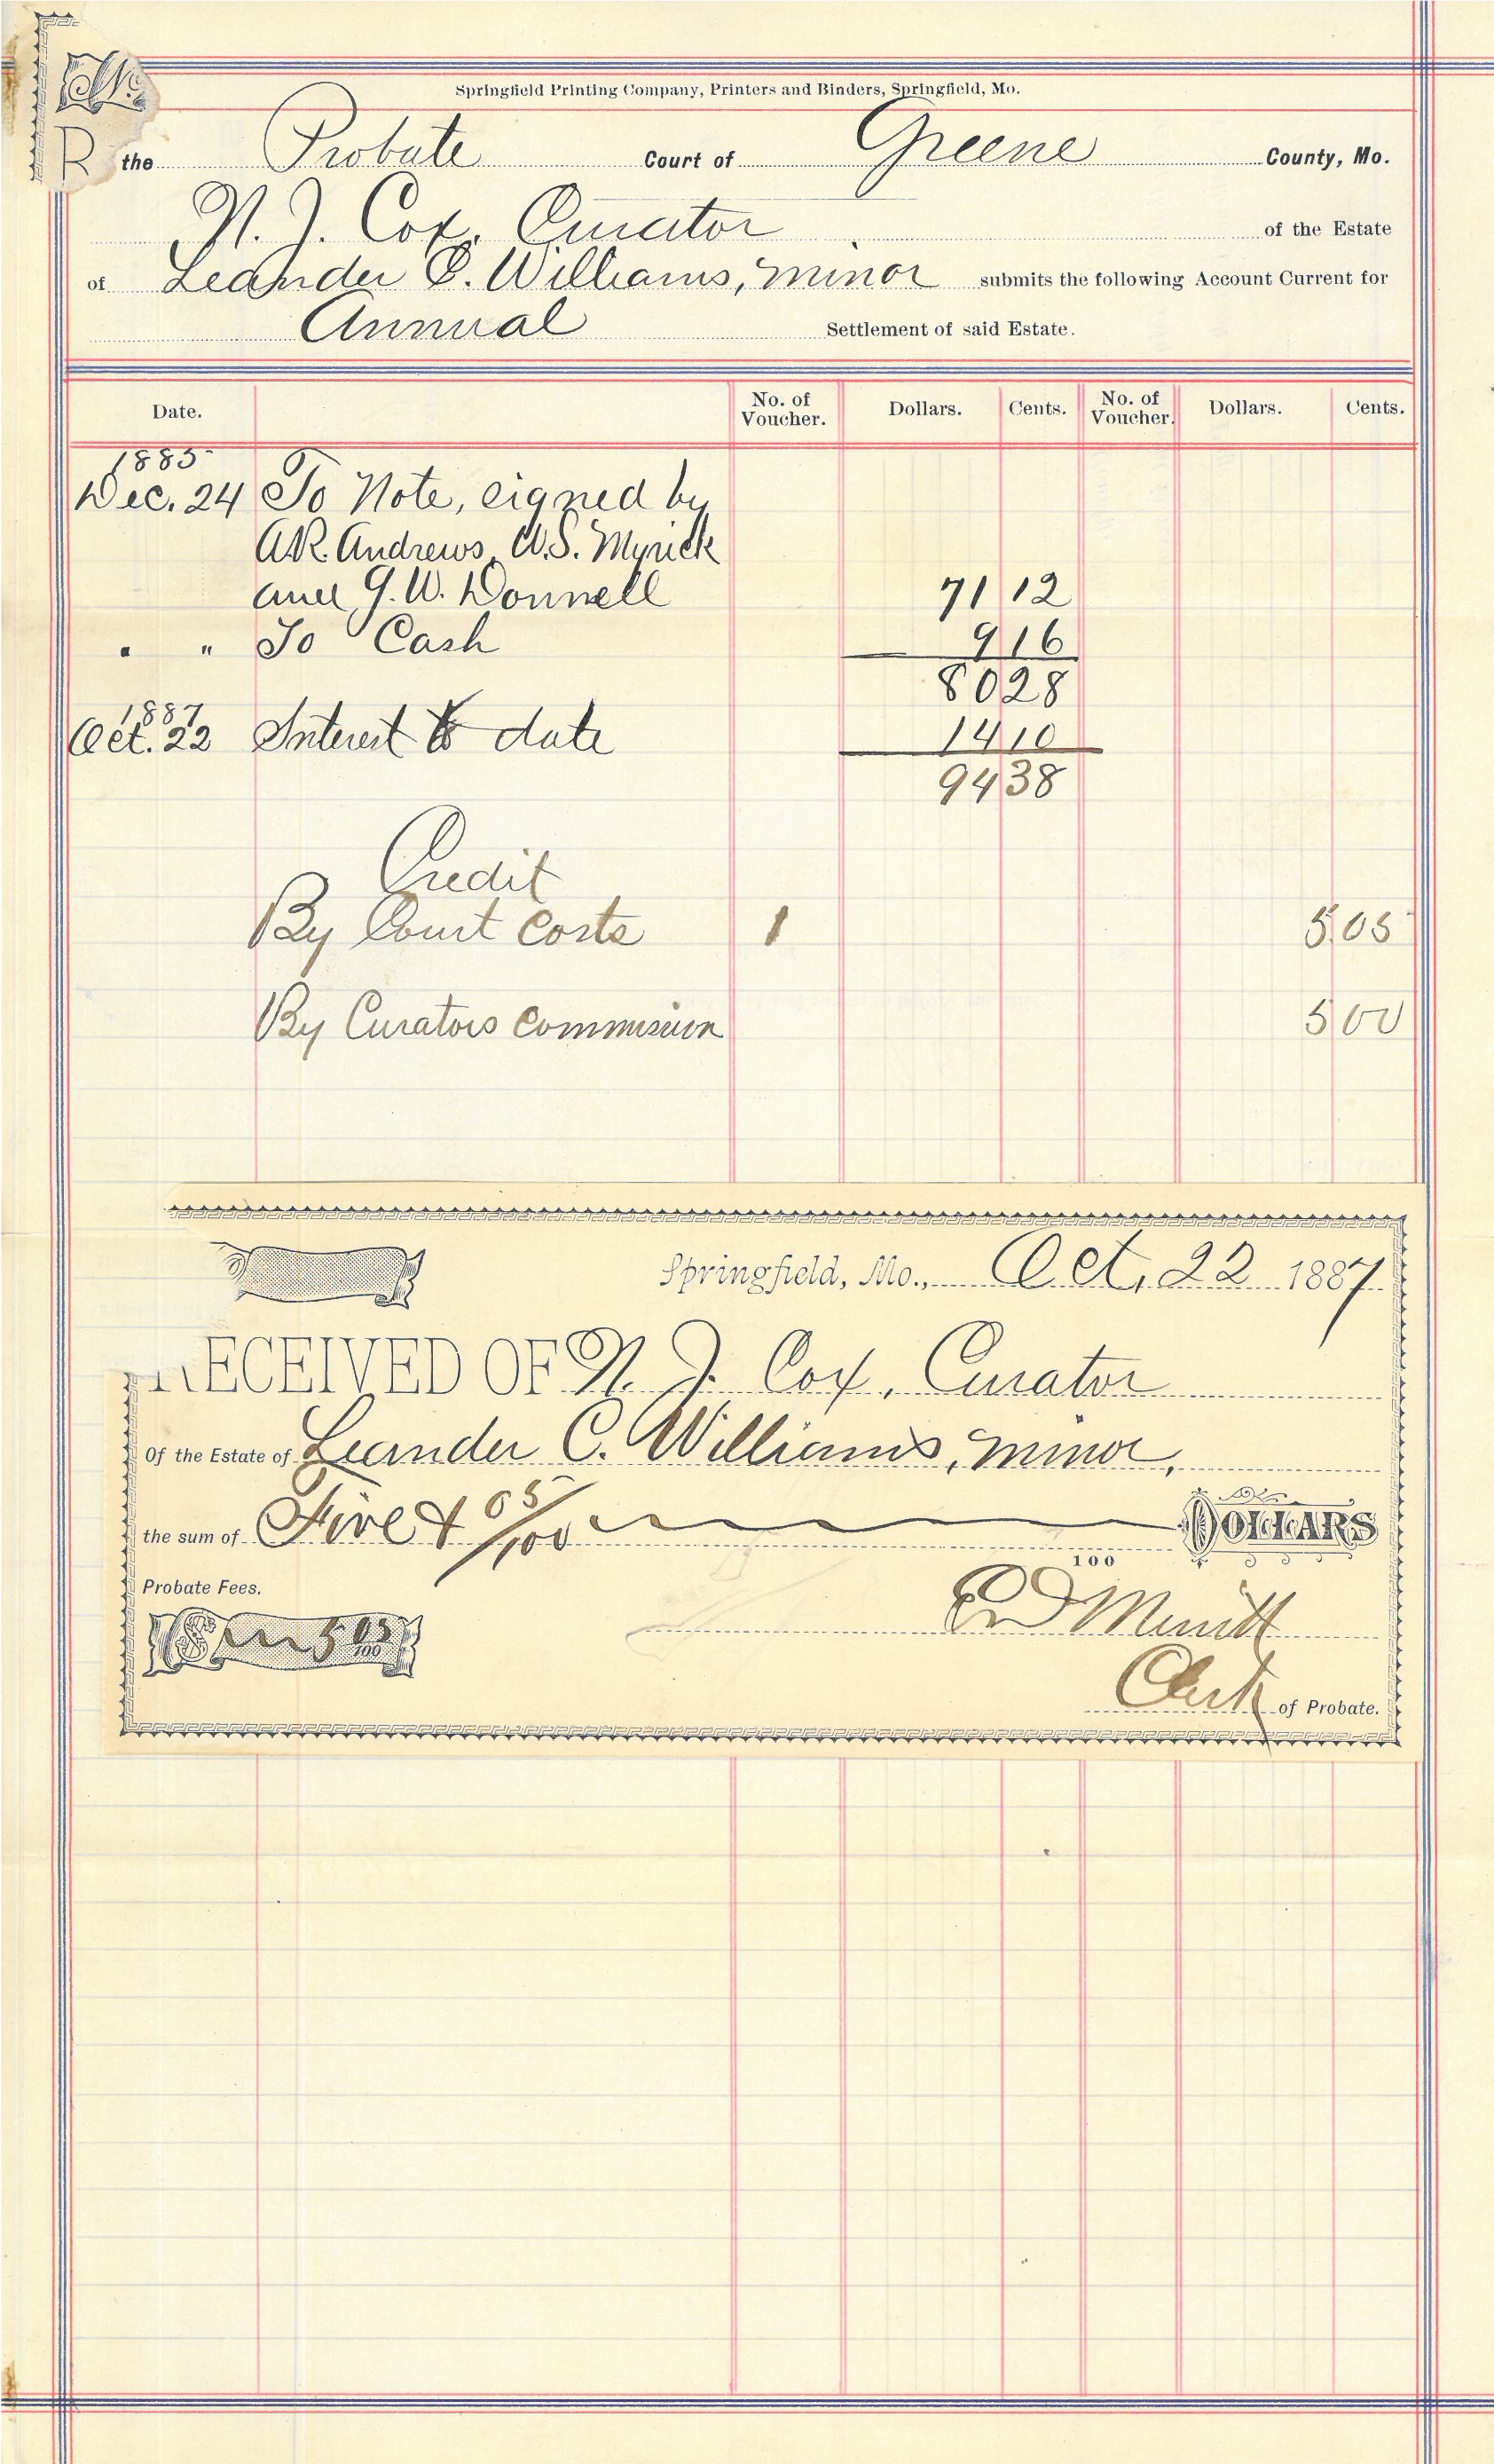 Springfield Printing Company, Printers and Binders, Springfield, Mo.
the Probate Court of Greene County, Mo.
N. J. Cox, Curator of the Estate
of Leander C. Williams, minor submits the following Account Current for
Annual Settlement of said Estate.
Date. No. of Voucher. Dollars. Cents. No. of Voucher. Dollars. Cents.
1885
Dec. 24 To Note, signed by
A.R. Andrews, W.S. Myrick
and G. W. Donnell 71 12
" " To Cash 9 16
80 28
1887
Oct. 22 Interest to date 14 10
94 38
Credit
By Court Costs 1 5 05
By Curators Commission 5 00
Springfield, Mo., Oct. 22 1887.
RECEIVED OF N. J. Cox, Curator
Of the Estate of Leander C. Williams, minor,
the sum of Five & 05/100 DOLLARS
100
Probate Fees.
Clerk of Probate.